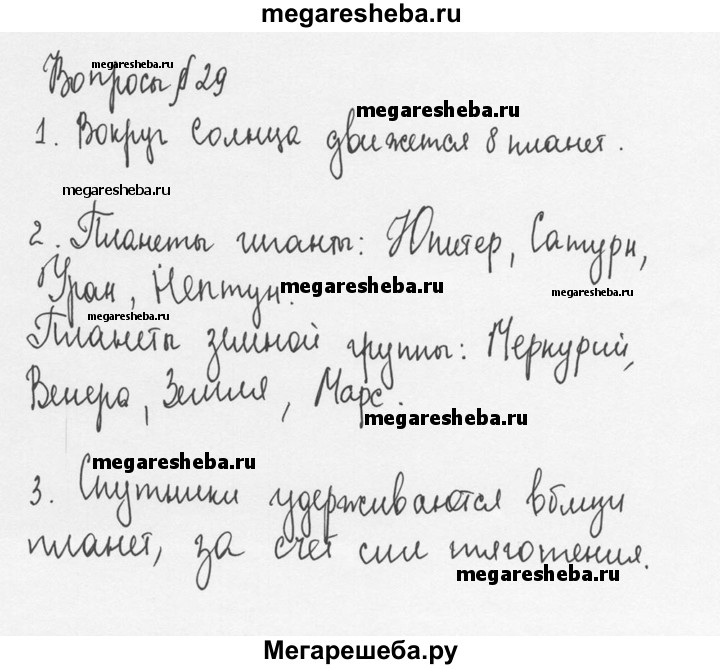 megaresheba.ru
Вопросы §29
megaresheba.ru
megaresheba.ru
1. Вокруг Солнца движется 8 планет.
megaresheba.ru
2. Планеты гиганты: Юпитер, Сатурн,
Уран, Нептун.
megaresheba.ru
megaresheba.ru
megaresheba.ru
Планеты земной группы: Меркурий,
Венера, Земля, Марс.
megaresheba.ru
megaresheba.ru
3. Спутники удерживаются вблизи
планет, за счёт сил тяготения.
megaresheba.ru
Мегарешеба.ру